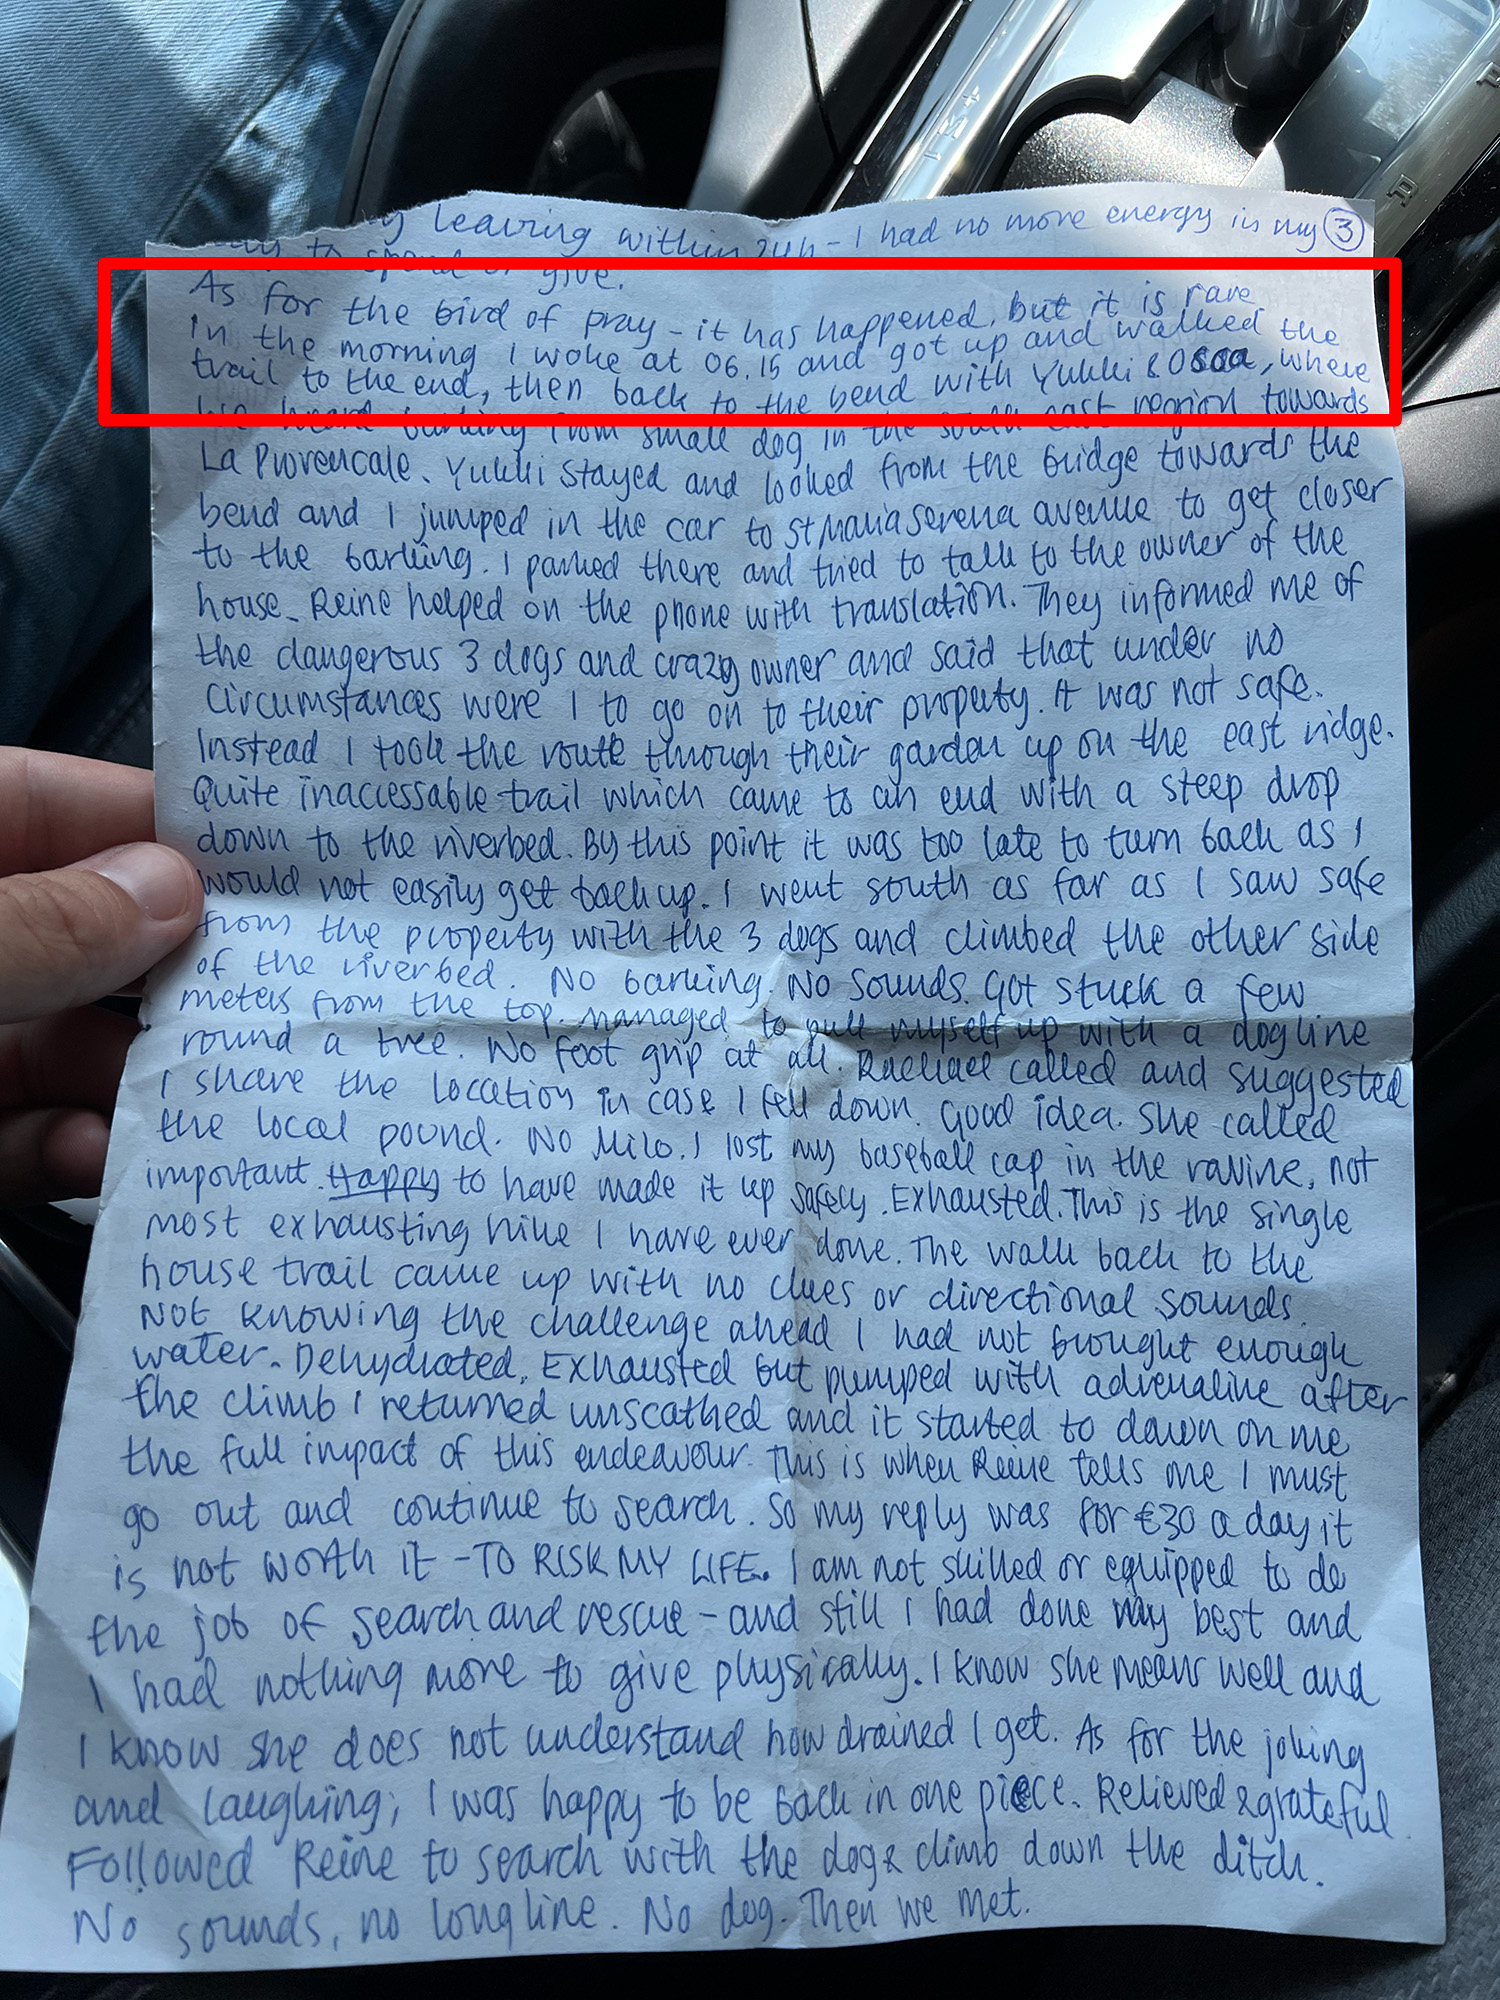 leaving within 24h - I had no more energy in my 3
to spend or give.
As for the bird of pray - it has happened, but it is rare
In the morning I woke at 06.15 and got up and walked the
trail to the end, then back to the bend with Yukki & , where
we heard barking from small dog in the south east region towards
La Provencale. Yukki stayed and looked from the bridge towards the
bend and I jumped in the car to St Maria Serena avenue to get closer
to the barking. I parked there and tried to talk to the owner of the
house - Reine helped on the phone with translation. They informed me of
the dangerous 3 dogs and crazy owner and said that under no
circumstances were I to go on to their property. It was not safe.
Instead I took the route through their garden up on the east ridge.
Quite inaccessable trail which came to an end with a steep drop
down to the riverbed. By this point it was too late to turn back as I
would not easily get back up. I went south as far as I saw safe
from the property with the 3 dogs and climbed the other side
of the riverbed. No barking. No sounds. Got stuck a few
meters from the top. Managed to pull myself up with a dogline
round a tree. No foot grip at all. Rachael called and suggested
I share the location in case I fell down. Good idea. She called
the local pound. No Milo. I lost my baseball cap in the ravine, not
important. Happy to have made it up safely. Exhausted. This is the single
most exhausting hike I have ever done. The walk back to the
house trail came up with no clues or directional sounds.
Not knowing the challenge ahead I had not brought enough
water. Dehydrated, Exhausted but pumped with adrenaline after
the climb I returned unscathed and it started to dawn on me
the full impact of this endeavour. This is when Reine tells me I must
go out and continue to search. So my reply was for €30 a day it
is not worth it - TO RISK MY LIFE. I am not skilled or equipped to do
the job of search and rescue - and still I had done my best and
I had nothing more to give physically. I know she means well and
I know she does not understand how drained I get. As for the joking
and laughing; I was happy to be back in one piece. Relieved & grateful.
Followed Reine to search with the dog & climb down the ditch.
No sounds, no longline. No dog. Then we met.